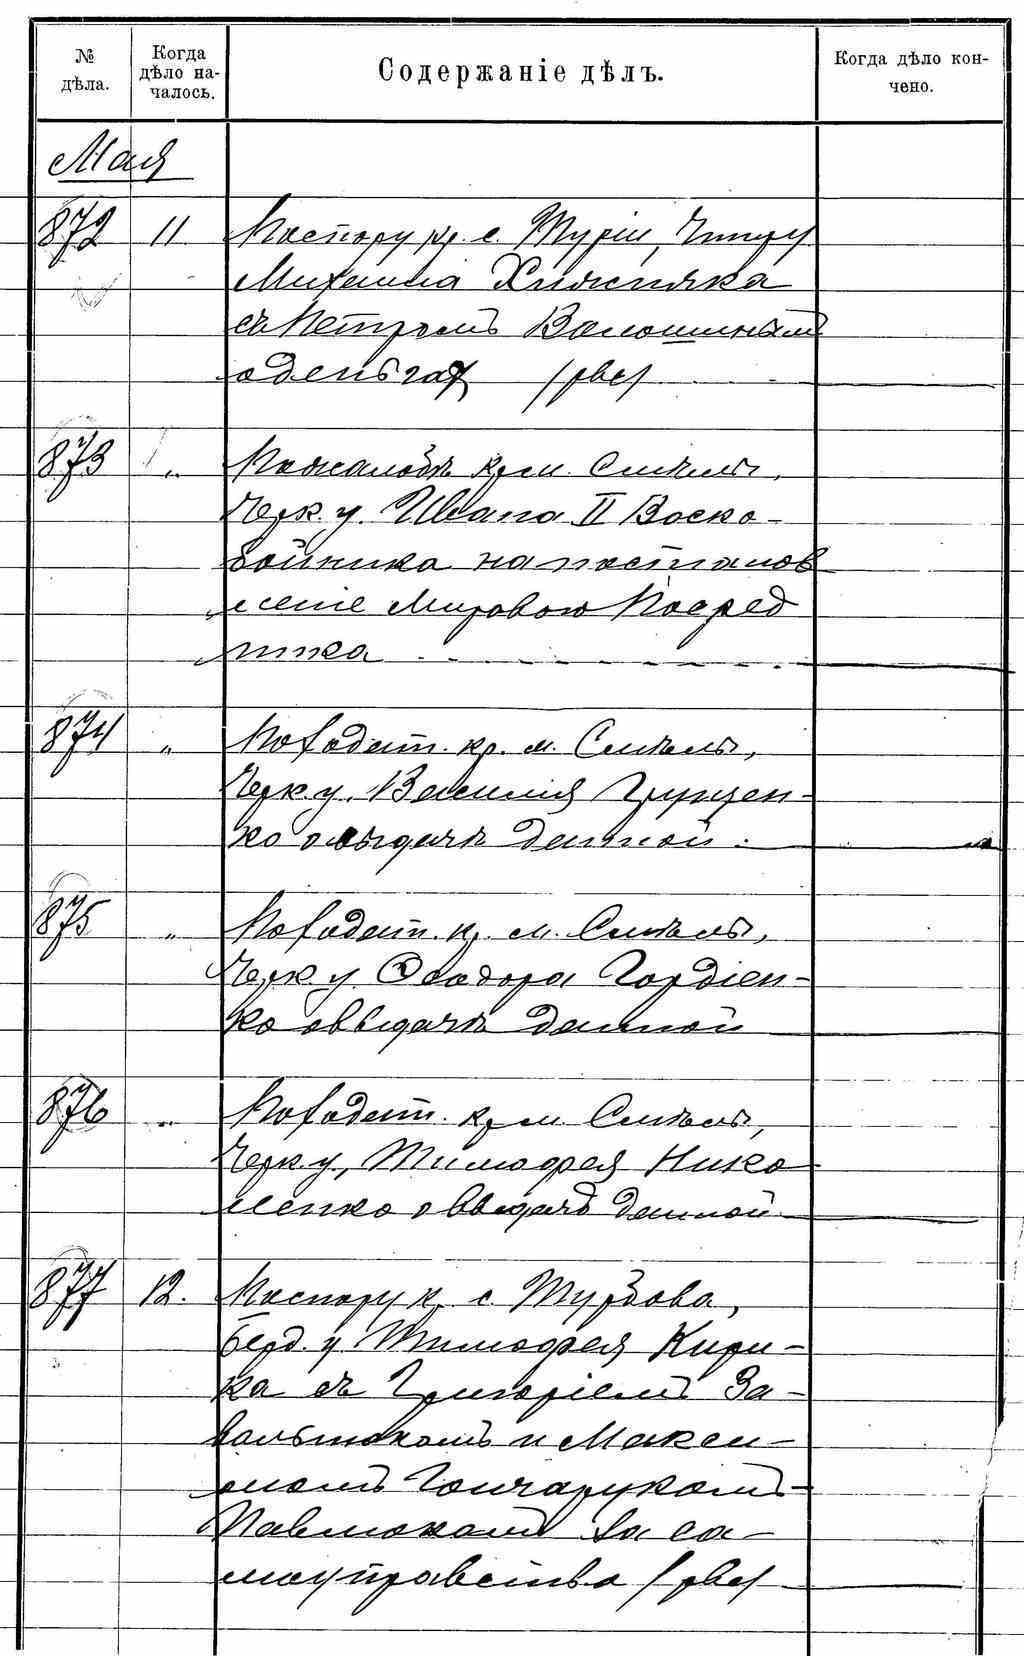 № дѣла.
Когда дѣло на-чалось.
Содержаніе дѣлъ.
Когда дѣло кон-чено.
Мая
872 11 По спору кр. с. Туріи, Чигир у
Михаила Хижняка
съ Петромъ Волошинымъ
о деньгах
873 " По жалобѣ кр. м. Смѣлы,
Черк. у. Ивана II Воско-
бойника на постанов
леніе Мирового Посред
ника
874 " По ходат. кр. м. Смѣлы,
Черк. у. Василія Гуцен-
ко о выдачѣ данной.
875 " По ходат. кр. м. Смѣлы,
Черк у. Ѳеодора Гордіен-
ко о выдачѣ данной
876 " По ходат. кр. м. Смѣлы,
Черк. у, Тимофея Нико
ленко о выдачѣ данной
877 12. По спору кр. с. Турбова,
Берд. у Тимофея Кири-
ка съ Григоріемъ За-
вальнюкомъ и Макси-
момъ Гончарукомъ-
Павлюкомъ за са-
моуправство